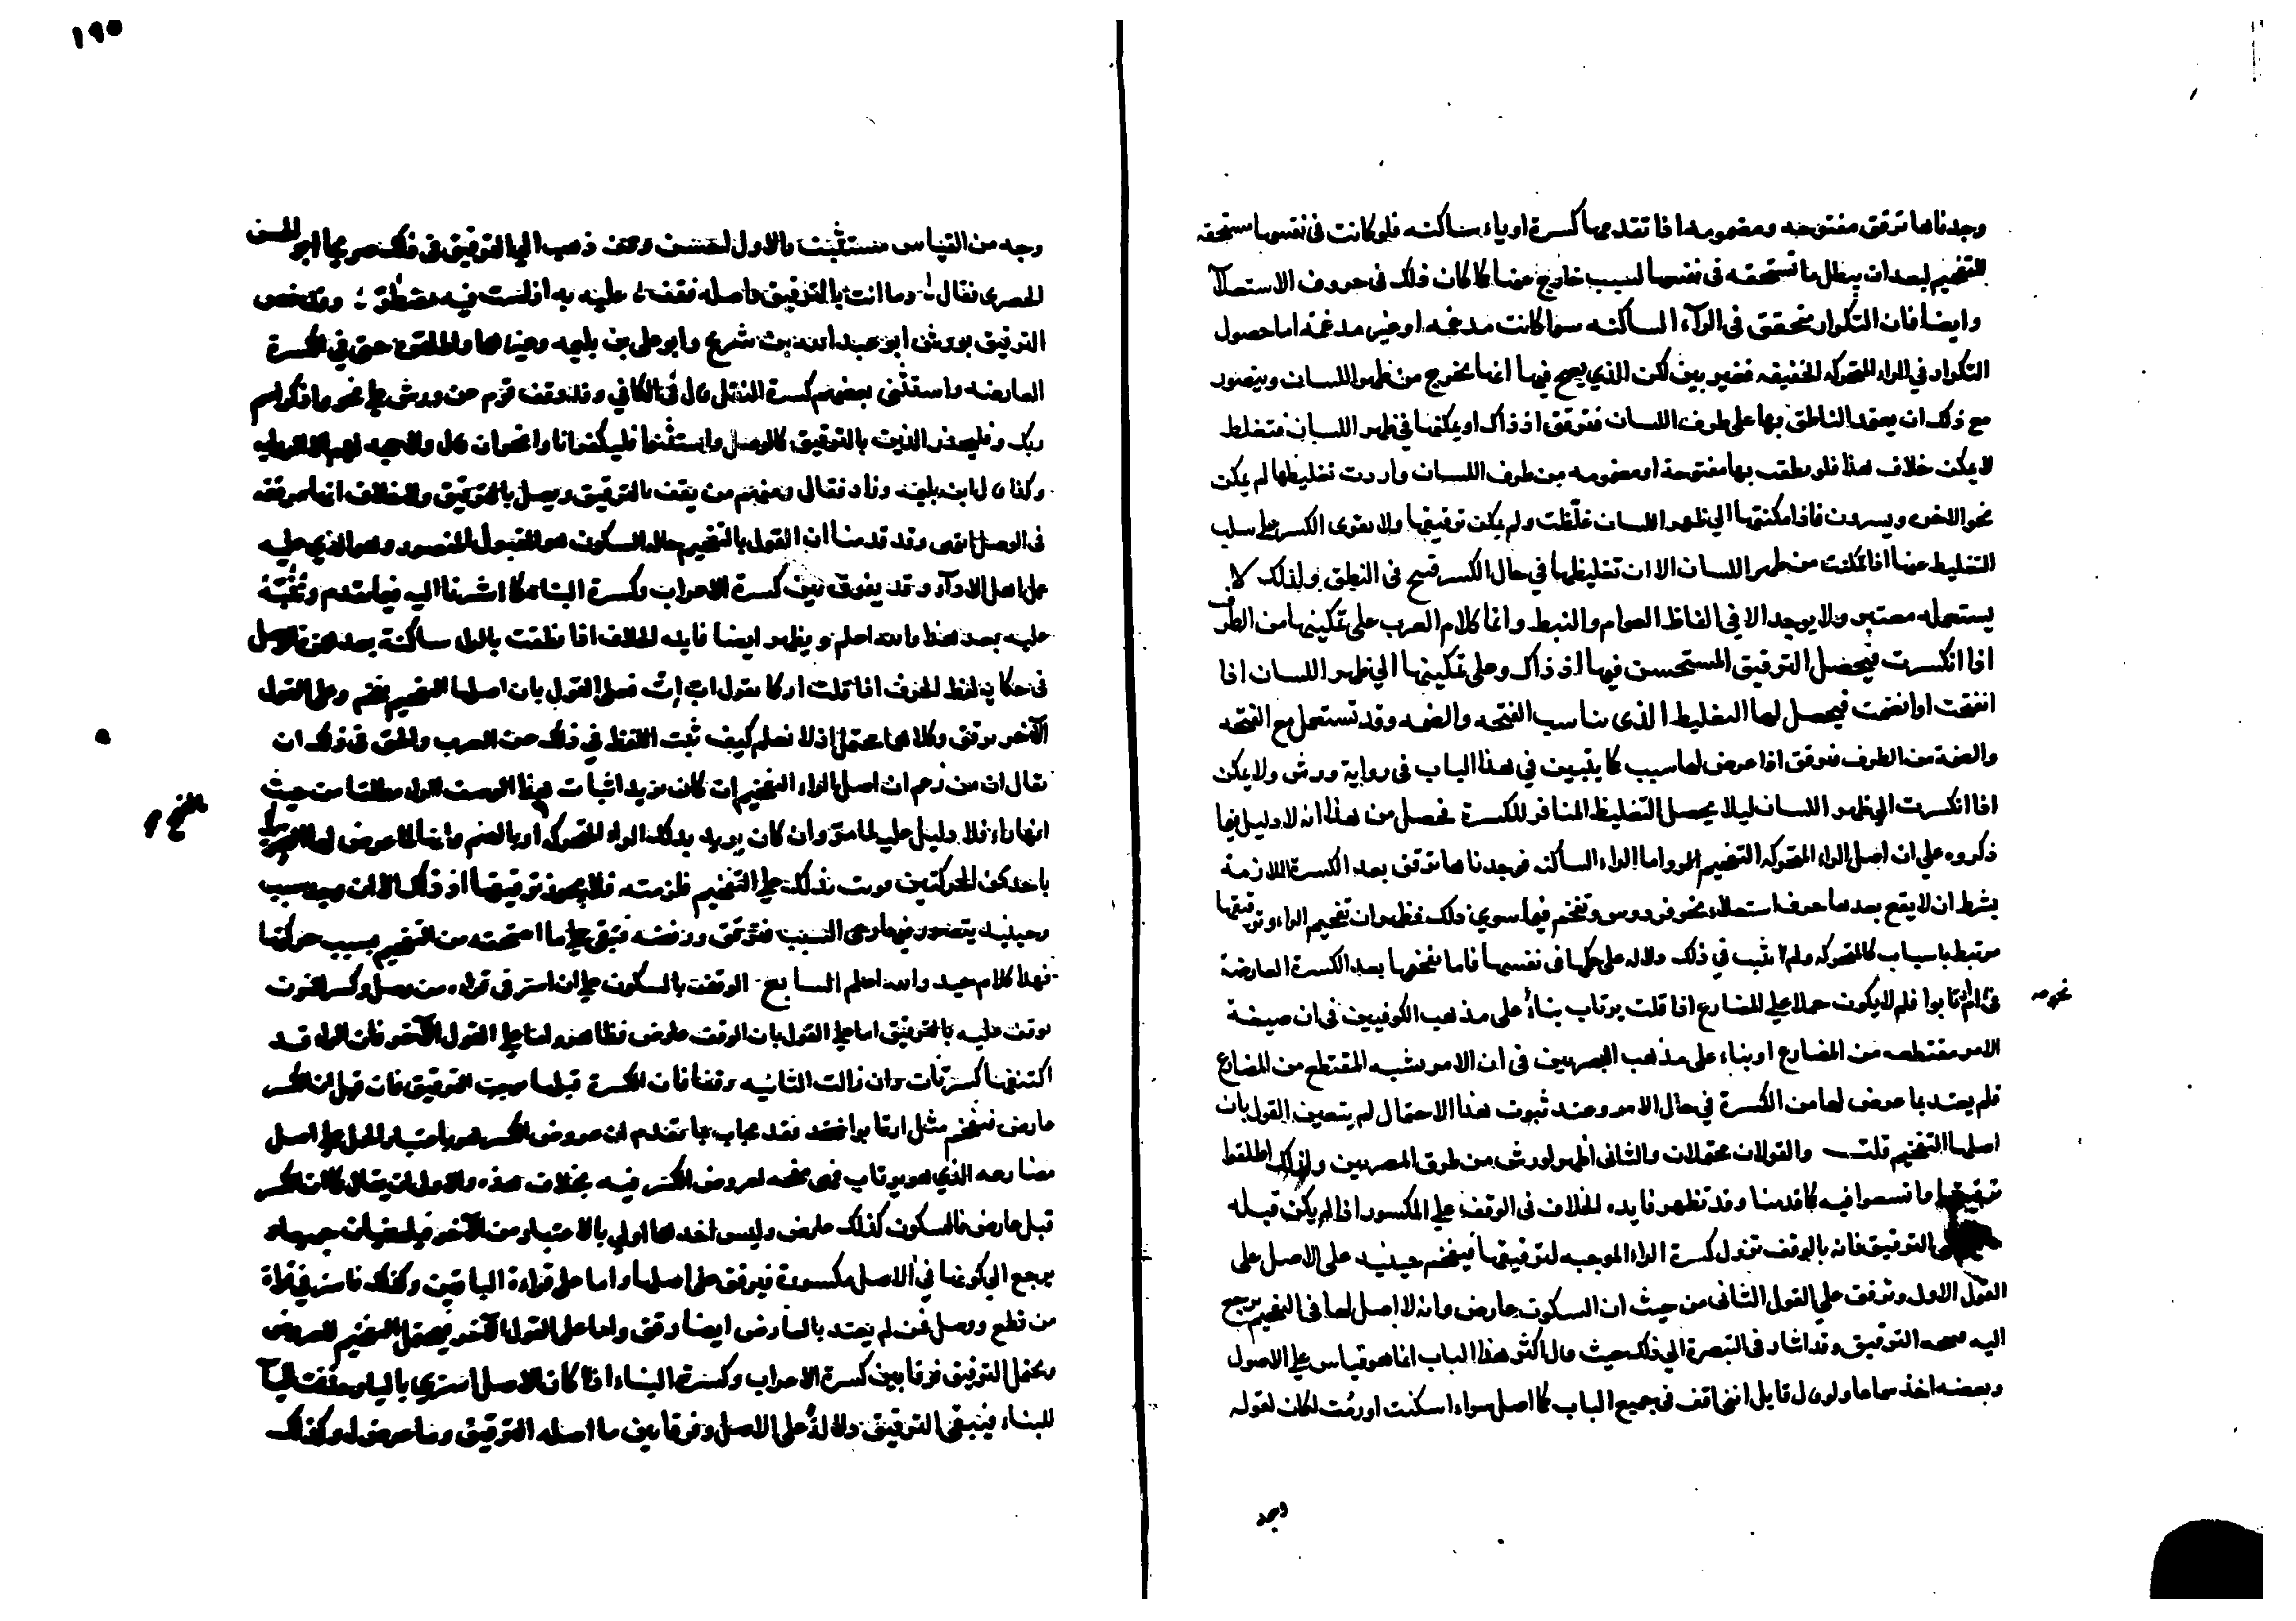 وجدناها ترقق مفتوحه ومضمومه اذا تقدمها كسرة او ياء ساكنه فلو كانت في نفسها مستحقه
للتفخيم لبعد ان يبطل ما تستحقه في نفسها لسبب خارج عنها كما كان ذلك في حروف الاستعلآ
وايضا فان التكرار متحقق في الرآء الساكنه سوا كانت مدغمه او غير مدغمة اما حصول
التكرار في الراء المتحركه الخفيفه فغير بين لكن الذي يصح فيها انها تخرج من ظهر اللسان ويتصور
مع ذلك ان يعتمد الناطق بها على طرف اللسان فترقق اذ ذاك او يمكنها في ظهر اللسان فتغلظ
لا يمكن خلاف هذا فلو نطقت بها مفتوحة او مضمومه من طرف اللسان واردت تغليظها لم يكن
نحو الاخره ويسرون فاذا مكنتها الي ظهر اللسان غلظت ولم يكن ترقيقها ولا يقوى الكسر على سلب
التغليظ عنها اذا تمكنت من ظهر اللسان الا ان تغليظها في حال الكسر قبيح في النطق ولذلك لا
يستعمله معتبر ولا يوجد الا في الفاظ العوام والنبط وانما كلام العرب على تمكينها من الطرف
اذا انكسرت فيحصل الترقيق المستحسن فيها اذ ذاك وعلى تمكينها الي ظهر اللسان اذا
انفتحت او انضمت فيحصل لها التغليظ الذى يناسب الفتحه والضمه وقد تستعمل مع الفتحه
والضمة من الطرف فترقق اذا عرض لها سبب كما يتبين في هذا الباب في رواية ورش ولا يمكن
اذا انكسرت الي ظهر اللسان ليلا يحصل التغليظ المنافر للكسرة فحصل من هذا انه لا دليل فيما
ذكروه علي ان اصل الراء المتحركه التفخيم واما الراء الساكنه فوجدناها ترقق بعد الكسرة اللازمة
بشرط ان لا يقع بعدها حرف استعلاء نحو فردوس وتفخم فيما سوي ذلك فظهر ان تفخيم الراء وترقيقها
مرتبط باسباب كالمتحركه ولم يثبت في ذلك دلاله على حكمها في نفسها فاما تفخيمها بعد الكسرة العارضة
في ام ارتابوا فلم لا يكون حملا علي المضارع اذا قلت يرتاب بناءً على مذهب الكوفيين في ان صيغة
نحو
الامر مقتطعه من المضارع او بناء على مذهب البصريين في ان الامر يشبه المقتطع من المضارع
فلم يعتد بما عرض لها من الكسرة في حال الامر وعند ثبوت هذا الاحتمال لم يتعين القول بان
اصلها التفخيم قلت والقولان محتملان والثاني اظهر لورش من طرق المصريين ولذلك اطلقوا
ترقيقها واتسعوا فيه كما قدمنا وقد تظهر فايده الخلاف في الوقف علي المكسور اذا لم يكن قبله
الترقيق فانه بالوقف تزول كسرة الراء الموجبه لترقيقها فيفخم حينيذ على الاصل على
القول الاول وترقق علي القول الثاني من حيث ان السكون عارض وانه لا اصل لها في التفخيم يرجع
اليه الترقيق وقد اشار في التبصرة الي ذلك حيث قال اكثر هذا الباب انما هو قياس علي الاصول
وبعضه اخذ سماعا ولو قال قايل انني اقف في جميع الباب كما اصل سواء اسكنت او رمت لكان لقوله
وجه
١٩٥
وجه من القياس مستثبت والاول احسن وممن ذهب الى الترقيق في ذلك صريحا ابو الحسن
الحصرى فقال وما انت بالترقيق واصله فقف عليه به اذ لست فيه بمضطر وقد خص
الترقيق بورش ابو عبد الله بن شريح وابو على بن بليمه وغيرهما واطلقوه حتى في الكسرة
العارضه واستثنى بعضهم كسرة النقل قال في الكافي وقد وقف قوم عن ورش على نحو واذكر اسم
ربك وفليحذر الذين بالترقيق كالوصل واستثنوا فليكفر انا وانحر ان قال
وكذا قال ابن بليمه وزاد فقال ومنهم من يقف بالترقيق ويصل بالترقيق ولا خلاف انها مرققه
في الوصل انتهى وقد قدمنا ان القول بالتفخيم حاله السكون هو المقبول المنصور وهو الذي عليه
عمل اهل الادآء وقد يفرق بين كسرة الاعراب وكسرة البناء كما اشرنا اليه فيما تقدم وننبّه
عليه بعد هذا والله اعلم ويظهر ايضا فايده الخلاف اذا نطقت بالراء ساكنة بعد همزة الوصل
في حكاية لفظ الحرف اذا قلت ار كما تقول اب ات فعلى القول بان اصلها التفخيم يفخم وعلى القول
الآخر يرقق وكلاهما محتمل اذ لا نعلم كيف ثبت اللفظ في ذلك عن العرب والحق في ذلك ان
يقال ان من زعم ان اصل الراء التفخيم ان كان يريد اثبات هذا الوصف للراء مطلقا من حيث
انها راء فلا دليل عليه لما مر وان كان يريد بذلك الراء المتحركه او بالضم وانها لما عرض لها
بالفتح
باحدى الحركتين قويت بذلك على التفخيم فلزمته فلا يجوز ترقيقها اذ ذاك الا ان وجد سبب
وحينيذ يتصور فيها رعى السبب فترقق ورفضه فتبقى على ما استحقته من التفخيم بسبب حركتها
فهذا كلام جيد والله اعلم السابع الوقف بالسكون على ان اسر في قراءه من وصل وكسر النون
يوقف عليه بالترقيق اما على القول بان الوقف عارض فظاهر واما على القول الآخر فان الراء قد
اكتنفها كسرتان وان زالت الثانيه وقفا فان الكسرة قبلها توجب الترقيق فان قيل ان الكسر
عارض فتفخم مثل ام ارتابوا فقد يجاب بما تقدم ان عروض الكسر هو باعتبار الحمل على اصل
مضارعه الذي هو يرتاب فهي مفخمه لعروض الكسر فيه بخلاف هذه والاولى ان يقال كما ان الكسر
قبل عارض فالسكون كذلك عارض وليس احدهما اولي بالاعتبار من الآخر فيلغيان جميعا و
يرجع الي كونها في الاصل مكسورة فيرقق على اصلها واما على قراءة الباقين وكذلك فاسر في قراءة
من قطع ووصل فمن لم يعتد بالعارض ايضا رقق واما على القول الآخر فيحتمل التفخيم للعروض
ويحتمل الترقيق فرقا بين كسرة الاعراب وكسرة البناء اذا كان الاصل اسري بالياء وحذفت اليآء
للبناء فيبقى الترقيق دلالةً على الاصل وفرقا بين ما اصله الترقيق وما عرض له وكذلك